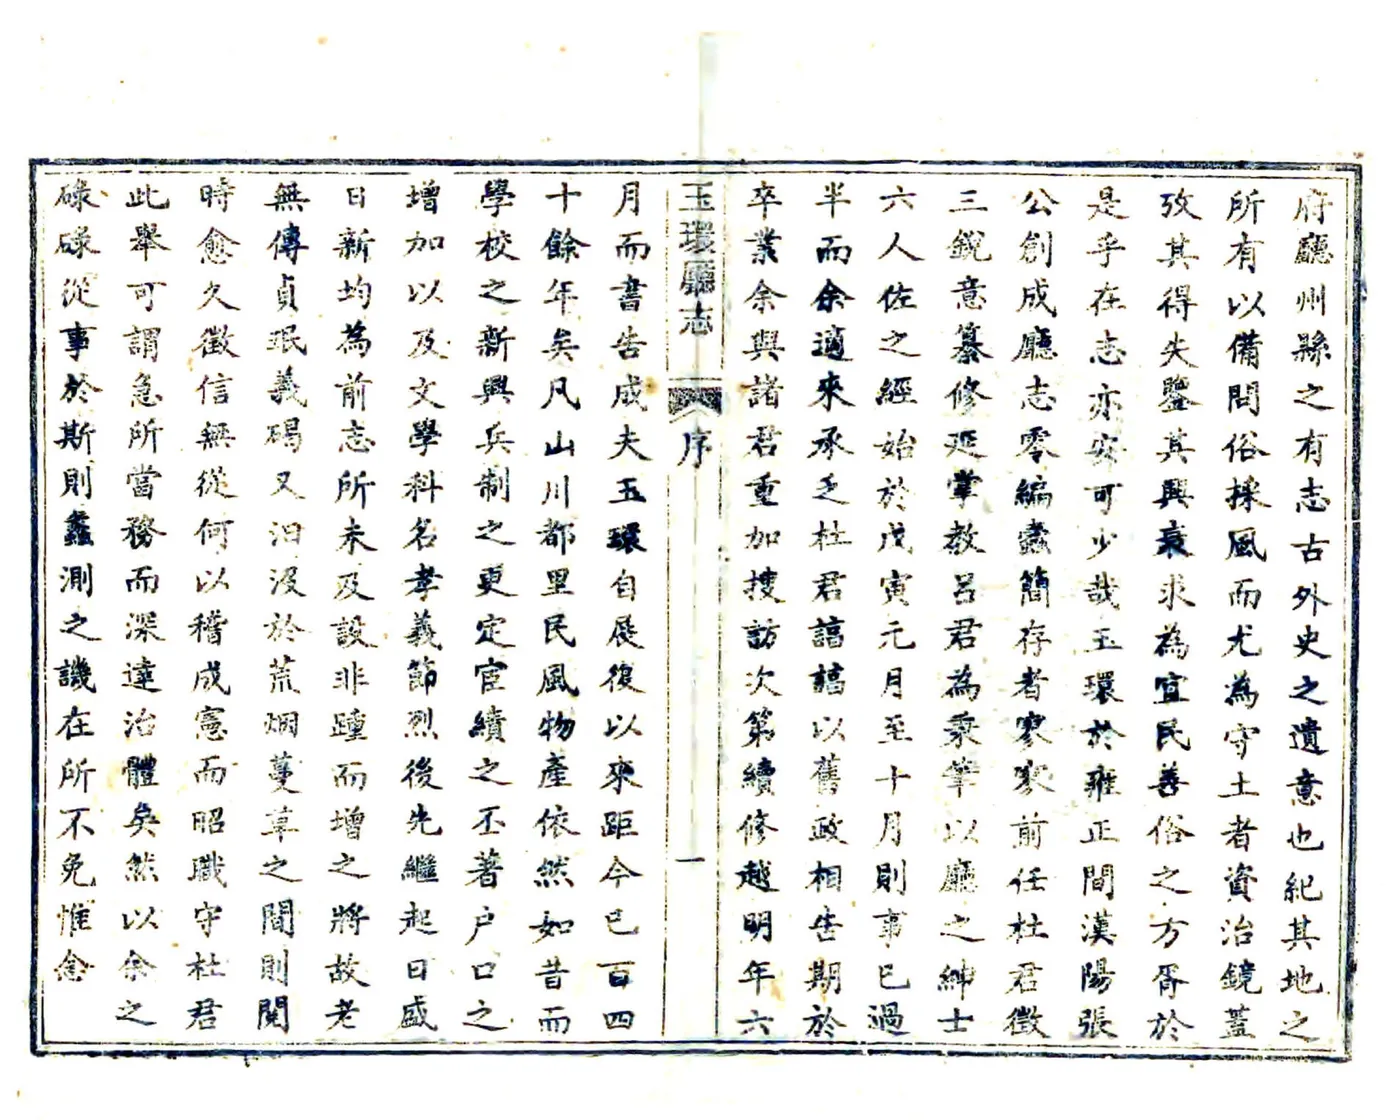 府廳州縣之有志古外史之遺意也紀其地之
所有以備問俗採風而尤為守土者資治鏡蓋
攷其得失鑒其興衰求為宜民善俗之方胥於
是乎在志亦安可少哉玉環於雍正間漢陽張
公創成廳志零編蠹簡存者寥寥前任杜君徵
三銳意纂修延掌教呂君為秉筆以廳之紳士
六人佐之經始於戊寅元月至十月則事已過
半而余適來承乏杜君諄諄以舊政相告期於
卒業余與諸君重加搜訪次第續修越明年六
玉環廳志
序
一
月而書告成夫玉環自展復以來距今已百四
十餘年矣凡山川都里民風物產依然如昔而
學校之新興兵制之更定宦績之丕著户口之
增加以及文學科名孝義節烈後先繼起日盛
日新均為前志所未及設非踵而增之將故老
無傳貞珉義碣又汩沒於荒烟蔓草之間則閱
時愈久徵信無從何以稽成憲而昭職守杜君
此舉可謂急所當務而深達治體矣然以余之
碌碌從事於斯則蠡測之譏在所不免惟念